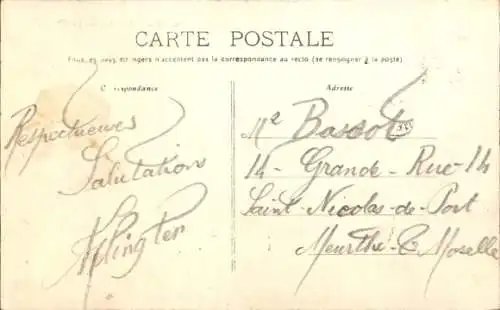 CARTE POSTALE
Tous les pays étrangers n'acceptent pas la correspondance au recto (se renseigner à la poste)
Correspondance
Adresse
Respectueuses
Salutation
Mr Bassot
14 - Grande - Rue - 14
Saint - Nicolas - de - Port
Meurthe - & Moselle